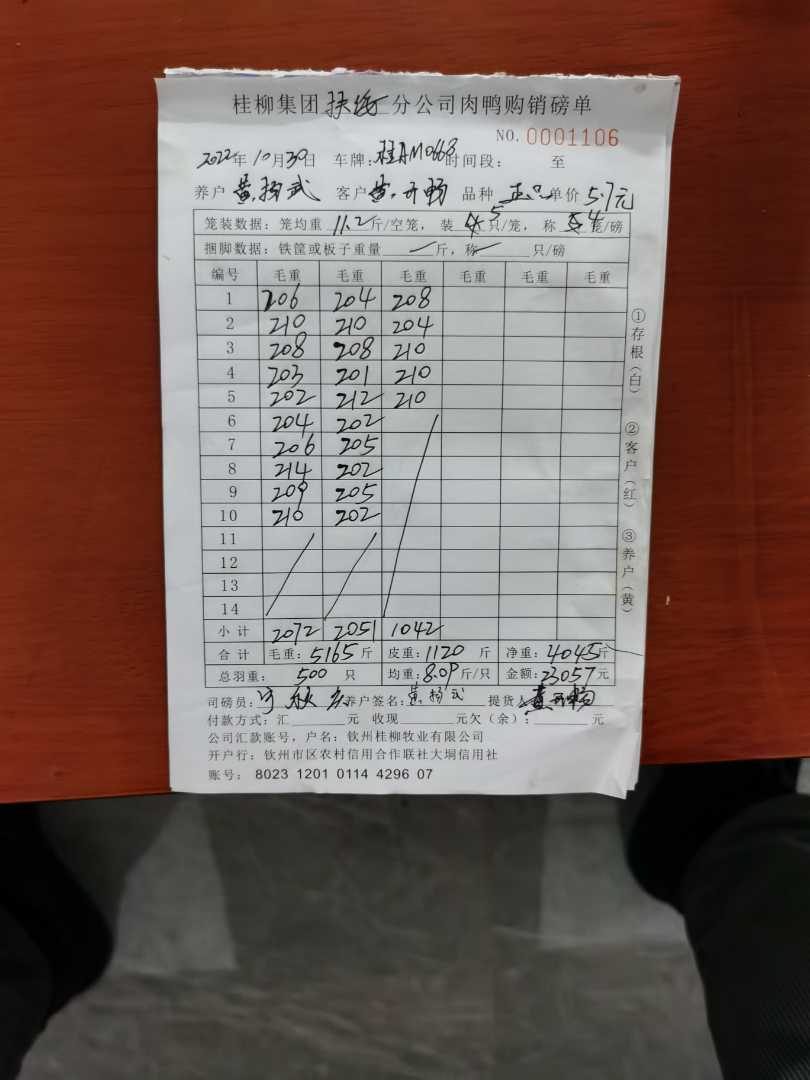 桂柳集团扶绥分公司肉鸭购销磅单
NO. 0001106
2022年10月30日 车牌:桂AM0668时间段: 至
养户 黄扬武 客户 黄开畅 品种 正品 单价 5.7元
笼装数据: 笼均重 11.2 斤/空笼, 装 5 只/笼, 称 4 笼/磅
捆脚数据: 铁筐或板子重量 — 斤, 称 — 只/磅
编号 毛重 毛重 毛重 毛重 毛重 毛重
1 206 204 208
2 210 210 204
3 208 208 210
4 203 201 210
5 202 212 210
6 204 202
7 206 205
8 214 202
9 209 205
10 210 202
11
12
13
14
小计 2072 2051 1042
合计 毛重: 5165 斤 皮重: 1120 斤 净重: 4045 斤
总羽重: 500 只 均重: 8.09 斤/只 金额: 23057元
司磅员: 养户签名: 黄扬武 提货人 黄开畅
付款方式: 汇 元 收现 元欠(余): 元
公司汇款账号, 户名: 钦州桂柳牧业有限公司
开户行: 钦州市区农村信用合作联社大垌信用社
账号: 8023 1201 0114 4296 07
①存根(白) ②客户(红) ③养户(黄)